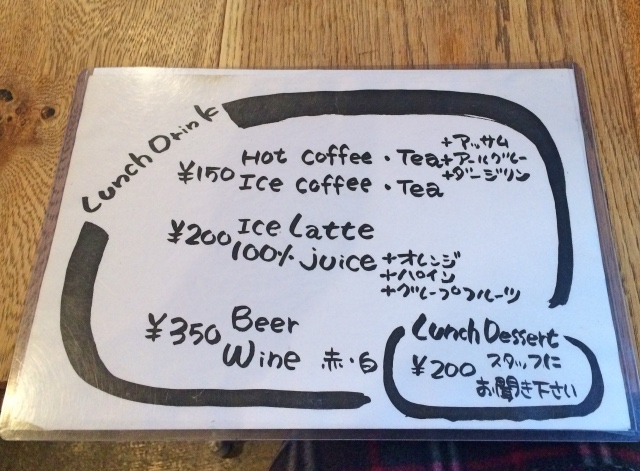 Lunch Drink
¥150 Hot coffee・Tea +アッサム
+アールグレー
+ダージリン
Ice coffee・Tea
¥200 Ice Latte
100% juice +オレンジ
+パイン
+グレープフルーツ
¥350 Beer
Wine 赤・白
Lunch Dessert
¥200 スタッフに
お聞き下さい